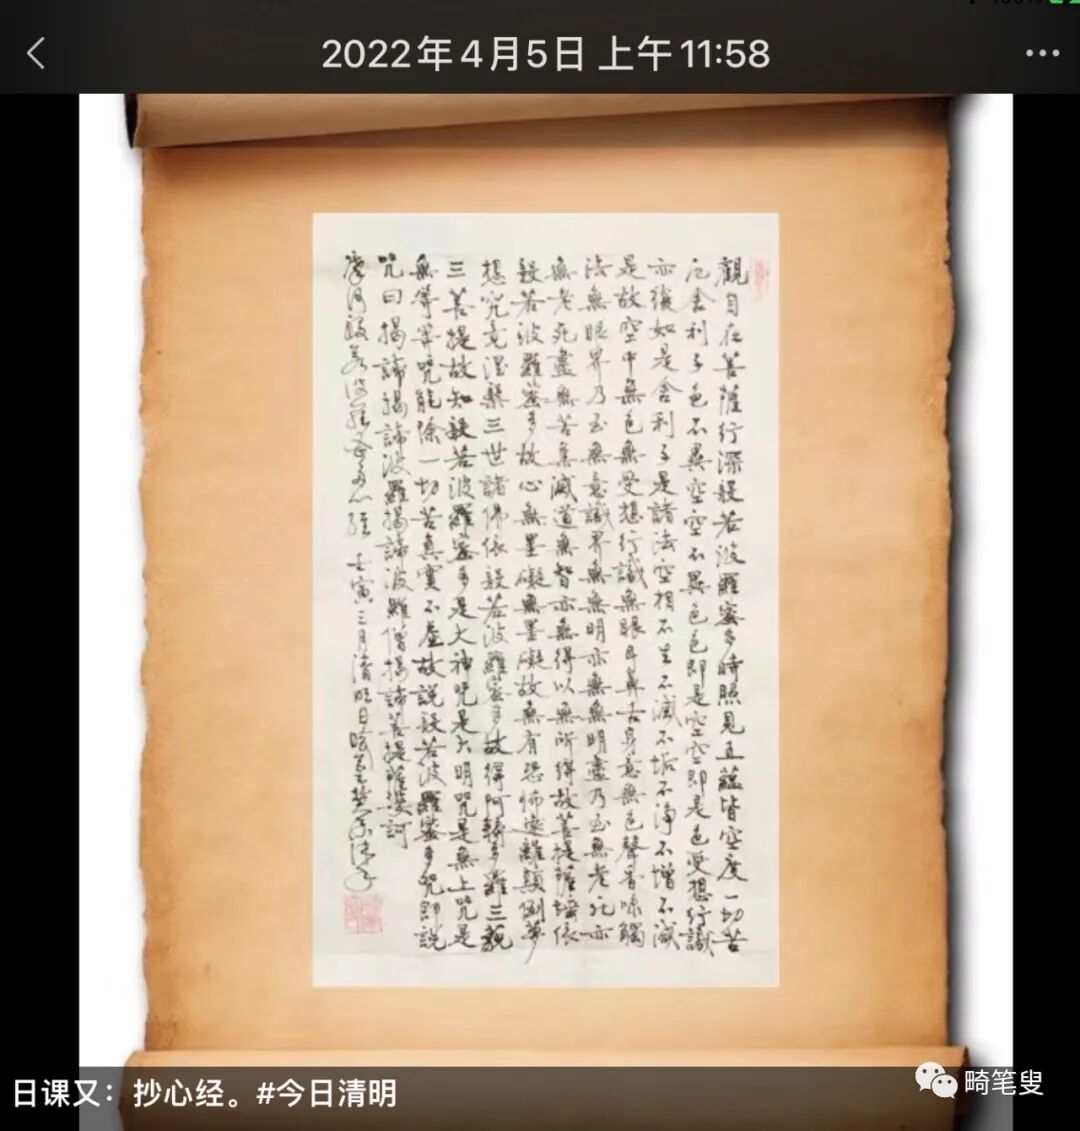 2022年4月5日 上午11:58
觀自在菩薩行深般若波羅蜜多時照見五蘊皆空度一切苦
厄舍利子色不異空空不異色色即是空空即是色受想行識
亦復如是舍利子是諸法空相不生不滅不垢不淨不增不減
是故空中無色無受想行識無眼耳鼻舌身意無色聲香味觸
法無眼界乃至無意識界無無明亦無無明盡乃至無老死亦
無老死盡無苦集滅道無智亦無得以無所得故菩提薩埵依
般若波羅蜜多故心無罣礙無罣礙故無有恐怖遠離顛倒夢
想究竟涅槃三世諸佛依般若波羅蜜多故得阿耨多羅三藐
三菩提故知般若波羅蜜多是大神咒是大明咒是無上咒是
無等等咒能除一切苦真實不虛故說般若波羅蜜多咒即說
咒曰揭諦揭諦波羅揭諦波羅僧揭諦菩提薩婆訶
摩訶般若波羅蜜多心經 壬寅三月清明日
日课又：抄心经。#今日清明
畸笔叟